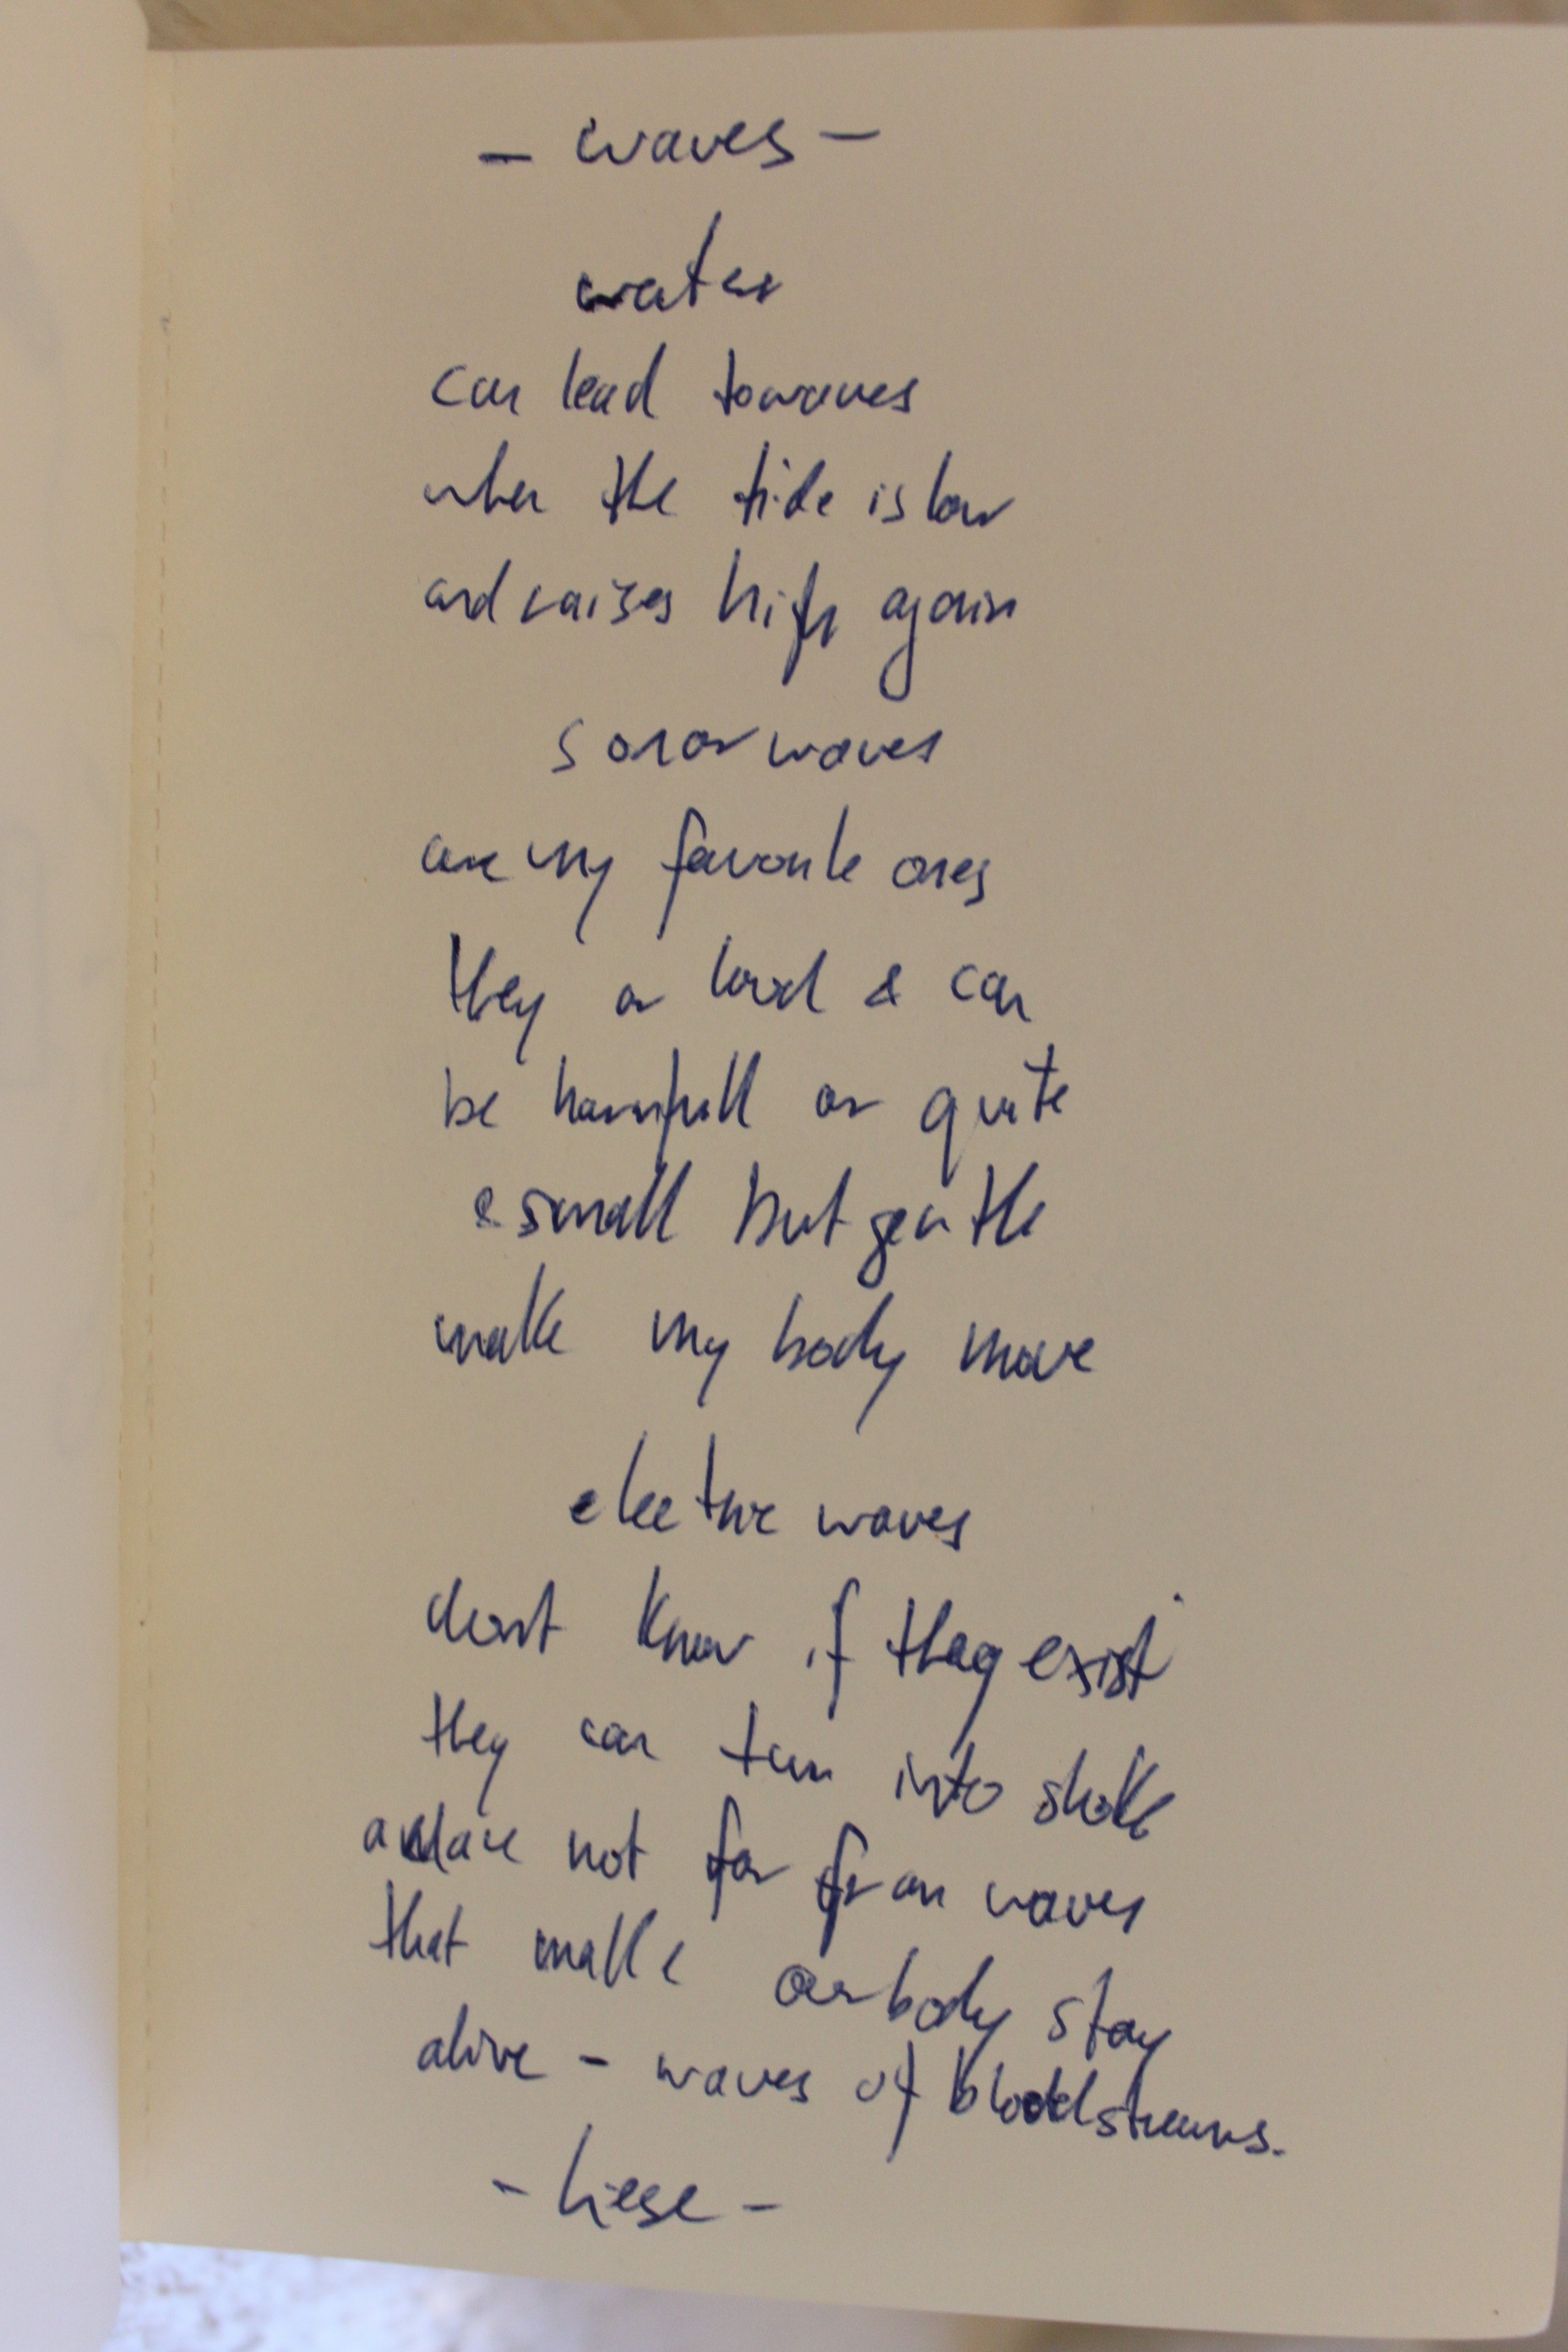 - waves -
water
can lead to waves
when the tide is low
and raises high again
sonar waves
are my favorite ones
they ar loud & can
be harmfull or quite
& small but gentle
make my body move
electric waves
dont know if they exist
they can turn into
and are not far from waves
that make our body stay
alive - waves of bloodstreams.
- Liese -